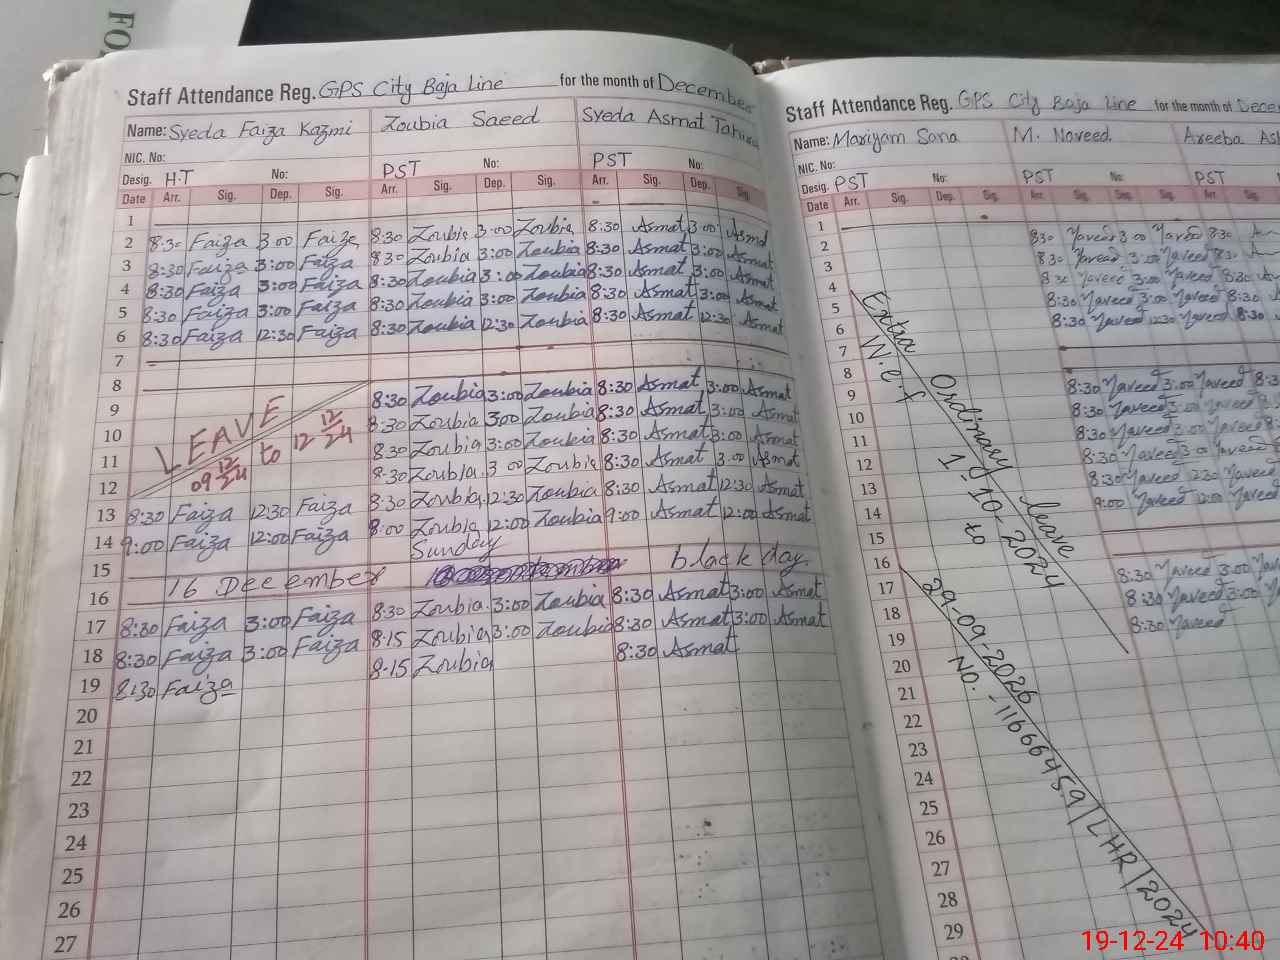 FO
Staff Attendance Reg. GPS City Baja Line for the month of December
Name: Syeda Faiza Kazmi Zoubia Saeed Syeda Asmat Tahira
NIC. No:
Desig. H.T No: PST No: PST No:
Date Arr. Sig. Dep. Sig. Arr. Sig. Dep. Sig. Arr. Sig. Dep. Sig.
1
2 8:30 Faiza 3:00 Faiza 8:30 Zoubia 3:00 Zoubia 8:30 Asmat 3:00 Asmat
3 8:30 Faiza 3:00 Faiza 8:30 Zoubia 3:00 Zoubia 8:30 Asmat 3:00 Asmat
4 8:30 Faiza 3:00 Faiza 8:30 Zoubia 3:00 Zoubia 8:30 Asmat 3:00 Asmat
5 8:30 Faiza 3:00 Faiza 8:30 Zoubia 3:00 Zoubia 8:30 Asmat 3:00 Asmat
6 8:30 Faiza 12:30 Faiza 8:30 Zoubia 12:30 Zoubia 8:30 Asmat 12:30 Asmat
7
8
9 8:30 Zoubia 3:00 Zoubia 8:30 Asmat 3:00 Asmat
10 8:30 Zoubia 3:00 Zoubia 8:30 Asmat 3:00 Asmat
11 8:30 Zoubia 3:00 Zoubia 8:30 Asmat 3:00 Asmat
12 8:30 Zoubia 3:00 Zoubia 8:30 Asmat 3:00 Asmat
LEAVE
09 12/24 to 12 12/24
13 8:30 Faiza 12:30 Faiza 8:30 Zoubia 12:30 Zoubia 8:30 Asmat 12:30 Asmat
14 9:00 Faiza 12:00 Faiza 8:00 Zoubia 12:00 Zoubia 9:00 Asmat 12:00 Asmat
15 Sunday
16 16 December black day.
17 8:30 Faiza 3:00 Faiza 8:30 Zoubia 3:00 Zoubia 8:30 Asmat 3:00 Asmat
18 8:30 Faiza 3:00 Faiza 8:15 Zoubia 3:00 Zoubia 8:30 Asmat 3:00 Asmat
19 8:30 Faiza 8:15 Zoubia 8:30 Asmat
20
21
22
23
24
25
26
27
Staff Attendance Reg. GPS City Baja Line for the month of Dece
Name: Mariyam Sana M. Naveed. Areeba As
NIC. No:
Desig. PST No: PST No: PST
Date Arr. Sig. Dep. Sig. Arr. Sig. Dep. Sig. Arr.
1
2 8:30 Naveed 3:00 Naveed 8:30
3 8:30 Naveed 3:00 Naveed 8:30
4 8:30 Naveed 3:00 Naveed 8:30
5 8:30 Naveed 3:00 Naveed 8:30
6 8:30 Naveed 12:30 Naveed 8:30
7
8
9 8:30 Naveed 3:00 Naveed 8:3
10 8:30 Naveed 3:00 Naveed
11 8:30 Naveed 3:00 Naveed
12 8:30 Naveed 3:00 Naveed
13 8:30 Naveed 12:30 Naveed
14 9:00 Naveed 12:00 Naveed
15
16
17 8:30 Naveed 3:00 Naveed
18 8:30 Naveed 3:00 Naveed
19 8:30 Naveed
20
21
22
23
24
25
26
27
28
29
Extra Ordinary leave
W.e.f 1-10-2024
to
29-09-2026
No. -11666459/LHR/2024
19-12-24 10:40